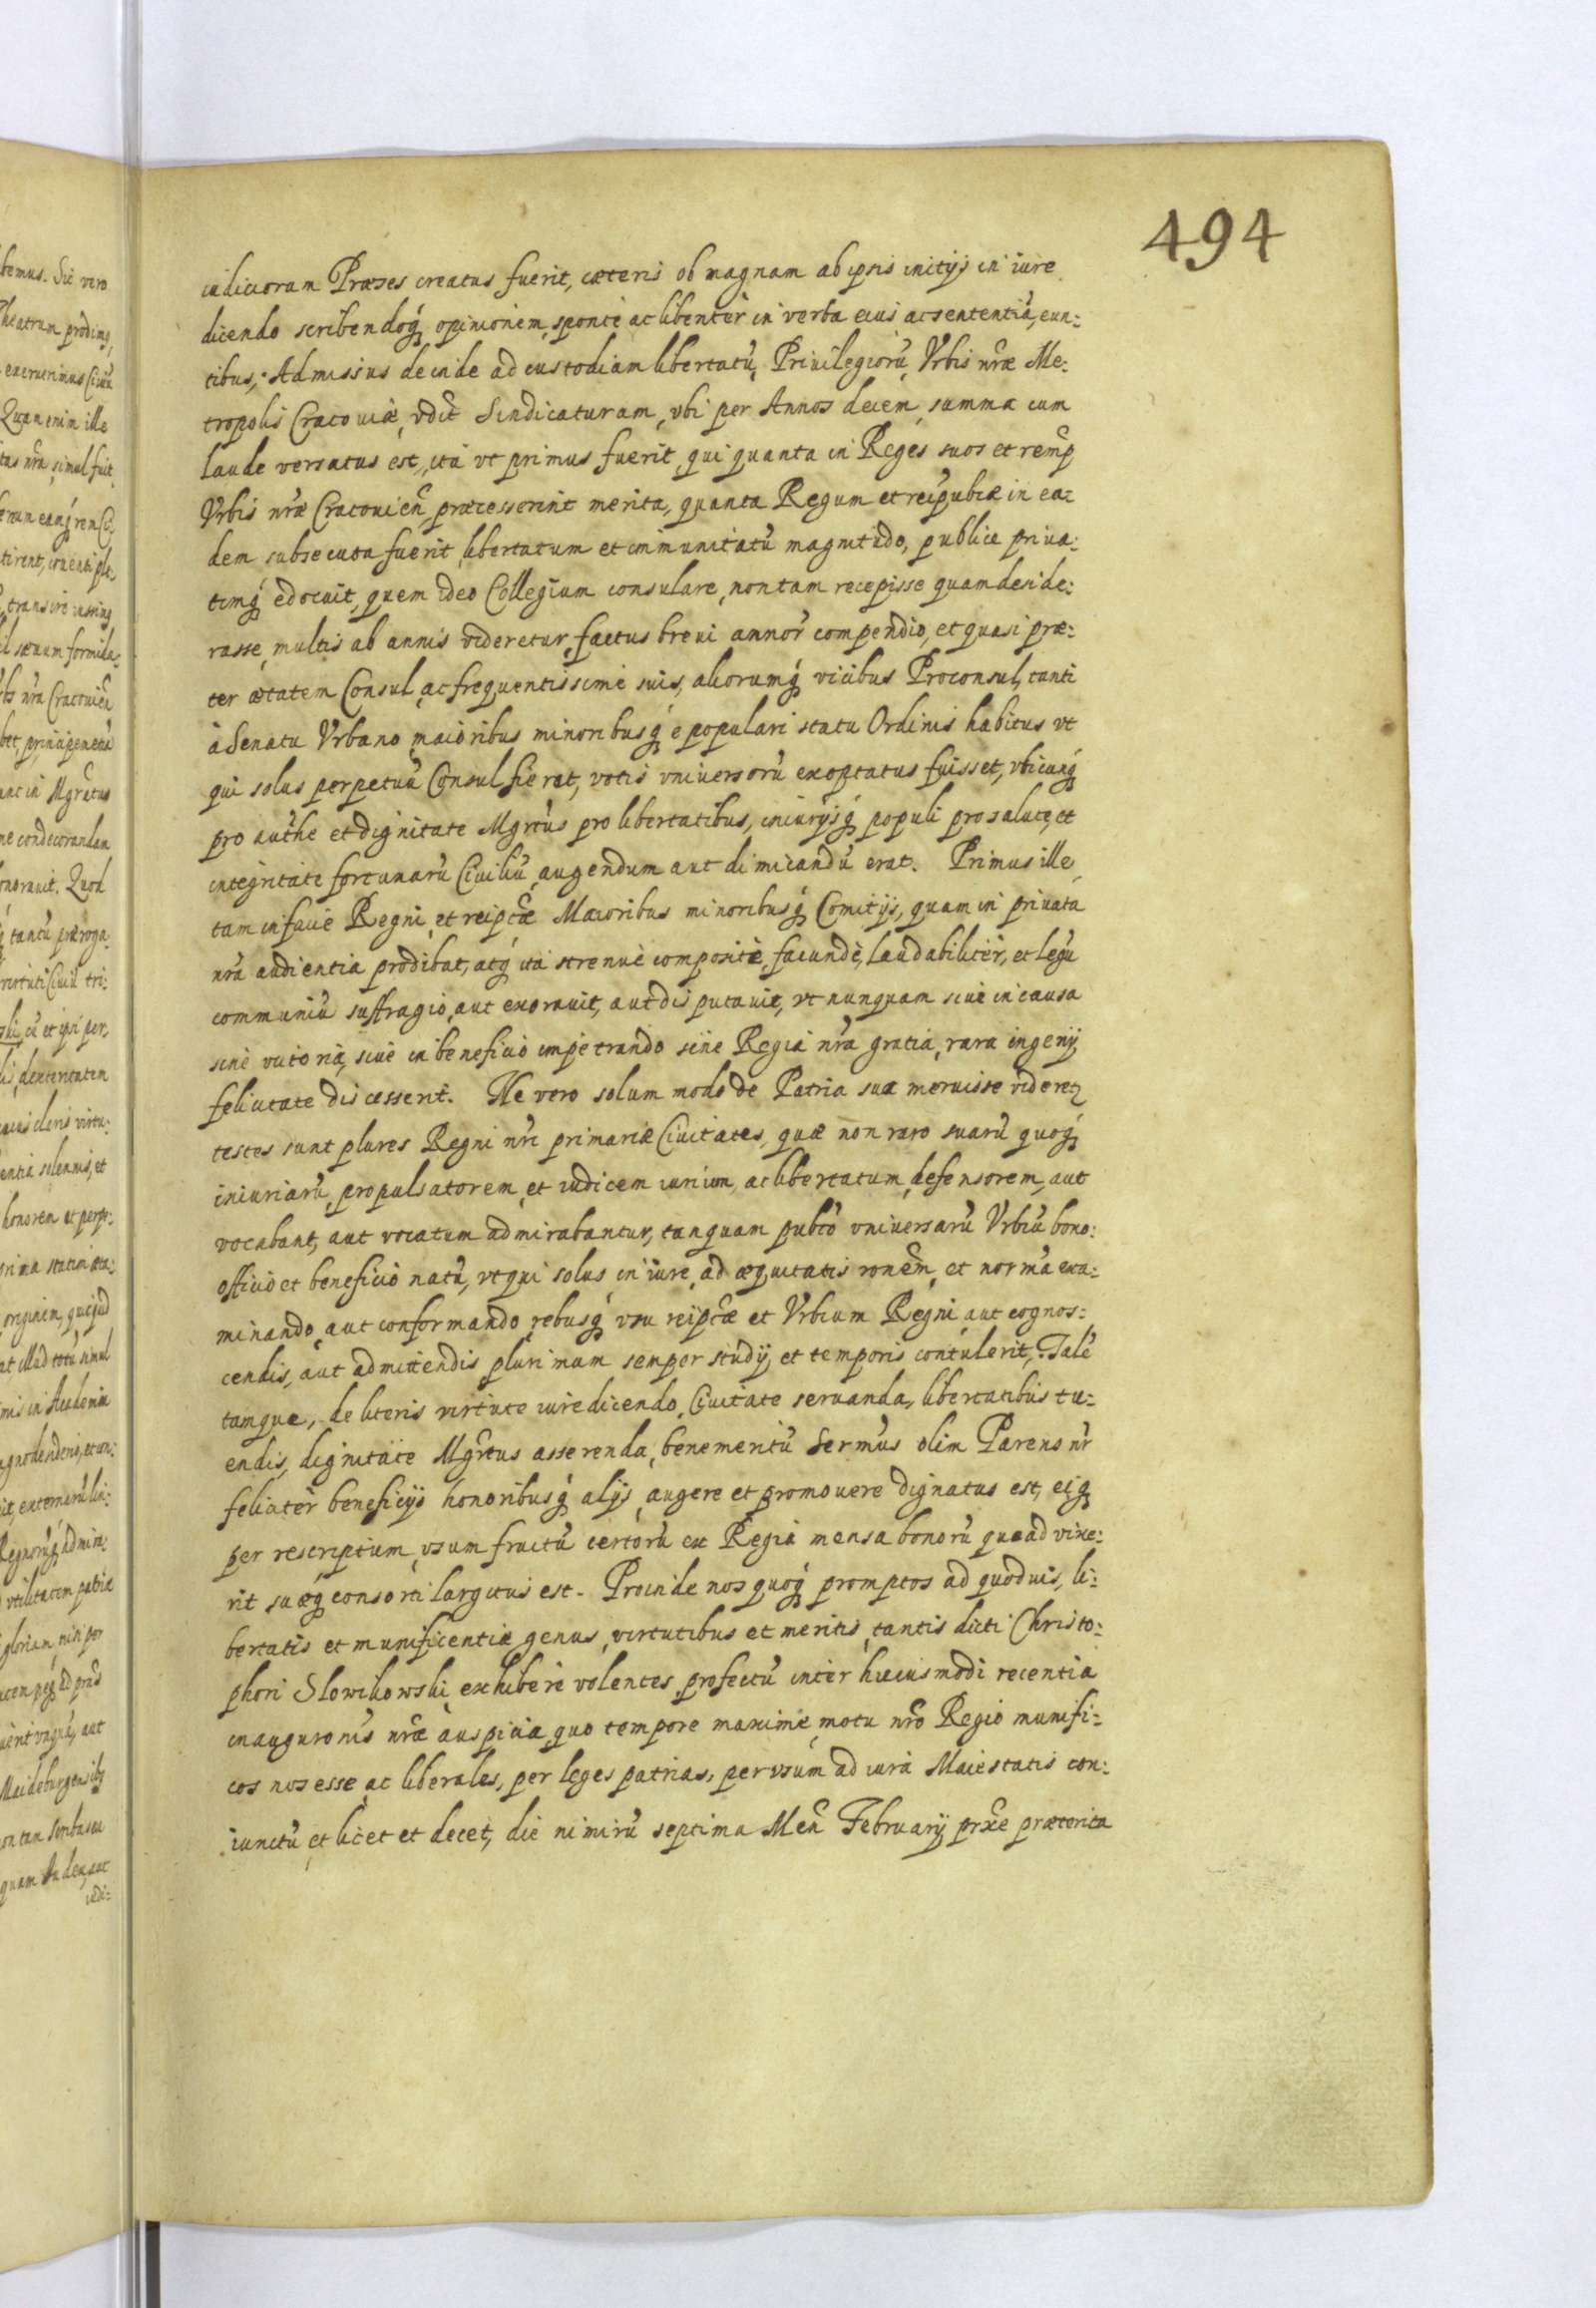 494
iudiciorum Præses creatus fuerit, cæteris ob magnam ab ipsis initÿs in iure
dicendo scribendoq́ opinionem, sponte ac libenter in verba eius ac sententiã, eun:
tibus, Admissus deinde ad custodiam libertatũ, Priuilegiorũ, Vrbis nr̃æ Me:
tropolis Cracouiæ, vdit̃ Sindicaturam, vbi per Annos decem, summa cum
laude versatus est, ita vt primus fuerit, qui quanta in Reges suos et remp̃
Vrbis nr̃æ Cracouien̄ præcesserint merita, quanta Regum et reipubcæ in ea:
dem subsecuta fuerit libertatum et immunitatũ magnitudo, publice priua:
timq́ edocuit, quem ideo Collegium consulare, non tam recepisse quam deside:
rasse, multis ab annis videretur, factus breui annor̃ compendio, et quasi præ:
ter ætatem Consul, ac frequentissime suis, aliorumq́ vicibus Proconsul, tanti
à Senatu Vrbano, maioribus minoribusq́ e populari statu Ordinis habitus vt
qui solus perpetuũ Consul fieret, votis vniuersorũ exoptatus fuisset, vbicunq́
pro authe et dignitate Mgrtũs pro libertatibus, iniurÿsq́ populi pro salute, et
integritate fortunarũ Ciuiliũ, augendum aut dimicandũ erat. Primus ille,
tam in facie Regni, et reiptæ Maioribus minoribusq́ Comitÿs, quam in priuata
nr̃a audientia prodibat, atq́ ita strenuè compositè, facundè, laudabiliter, et legũ
communiũ suffragio, aut exorauit, aut disputauit, vt nunquam siue in causa
sine victoria, siue in beneficio impetrando sine Regia nr̃a gratia, rara ingenÿ
felicitate discesserit. Ne vero solum modo de Patria sua meruisse videretꝛ
testes sunt plures Regni nr̃i primariæ Ciuitates, quæ non raro suarũ quoq́
iniuriarũ, propulsatorem, et iudicem iurium, ac libertatum, defensorem, aut
vocabant, aut vocatum admirabantur, tanquam pubco vniuersarũ Vrbiũ bono:
officio et beneficio natũ, vt qui solus, in iure, ad æquitatis ronem̃, et normã exa:
minando, aut conformando, rebusq́ vsu reiptæ et Vrbium Regni, aut cognos:
cendis, aut admittendis plurimum semper studÿ et temporis contulerit, Talẽ
tamque, de literis virtute iure dicendo, Ciuitate seruanda, libertatibus tu:
endis, dignitate Mgrtus asserenda, benemeritũ Sermũs olim Parens nr̃
feliciter beneficÿs honoribusq́ alÿs, augere et promouere dignatus est, eiq́
per rescriptum, vsum fructũ certorũ ex Regia mensa bonorũ quoad vixe:
rit suæq́ consorti largitus est. Proinde nos quoq́ promptos ad quoduis, li:
bertatis et munificentiæ genus, virtutibus et meritis, tantis dicti Christo:
phori Slowikowski exhibere volentes, profectũ inter huiusmodi recentia
inauguronis nr̃æ auspicia, quo tempore maxime, motu nr̃o Regio munifi:
cos nos esse ac liberales, per leges patrias, per vsum ad iura Maiestatis con:
iunctũ et licet et decet, die nimirũ septima Men̄ Februarÿ prxe præterita